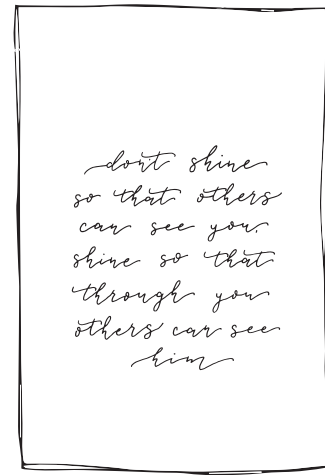 don't shine
so that others
can see you.
shine so that
through you
others can see
him